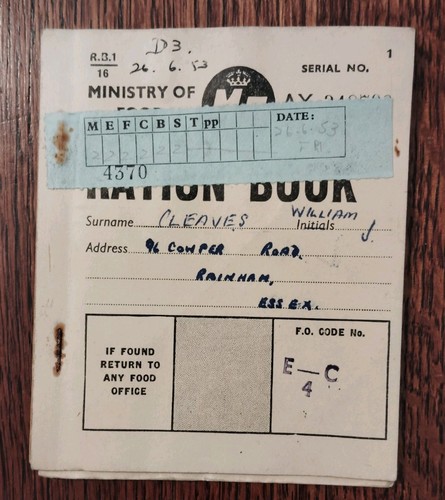 R.B.1
16
D3.
26.6.53
SERIAL NO.
1
MINISTRY OF
M E F C B S T pp
DATE:
26.6.53
4370
RATION BOOK
Surname CLEAVES WILLIAM J
Initials
Address 96 COWPER ROAD,
RAINHAM,
ESSEX.
IF FOUND
RETURN TO
ANY FOOD
OFFICE
F.O. CODE No.
E — C
4